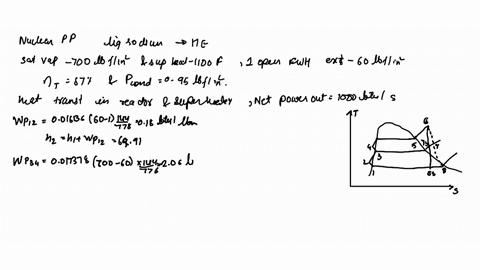 Nuclear PP liq sodium → HE
sat vap -700 lbf/in² & sup heat -1100 F , 1 open FWH ext - 60 lbf/in²
ηT = 87% & Pcond = 0.95 lbf/in².
heat transf in reactor & superheater , Net power out = 1000 btu/s
WP12 = 0.01636 (60-1) 144/778 = 0.18 btu/lbm
h2 = h1 + WP12 = 69.91
WP34 = 0.017378 (700-60) × 144/778 = 2.06 b
T
6
4
3
5
7
2
1
8s
8
S